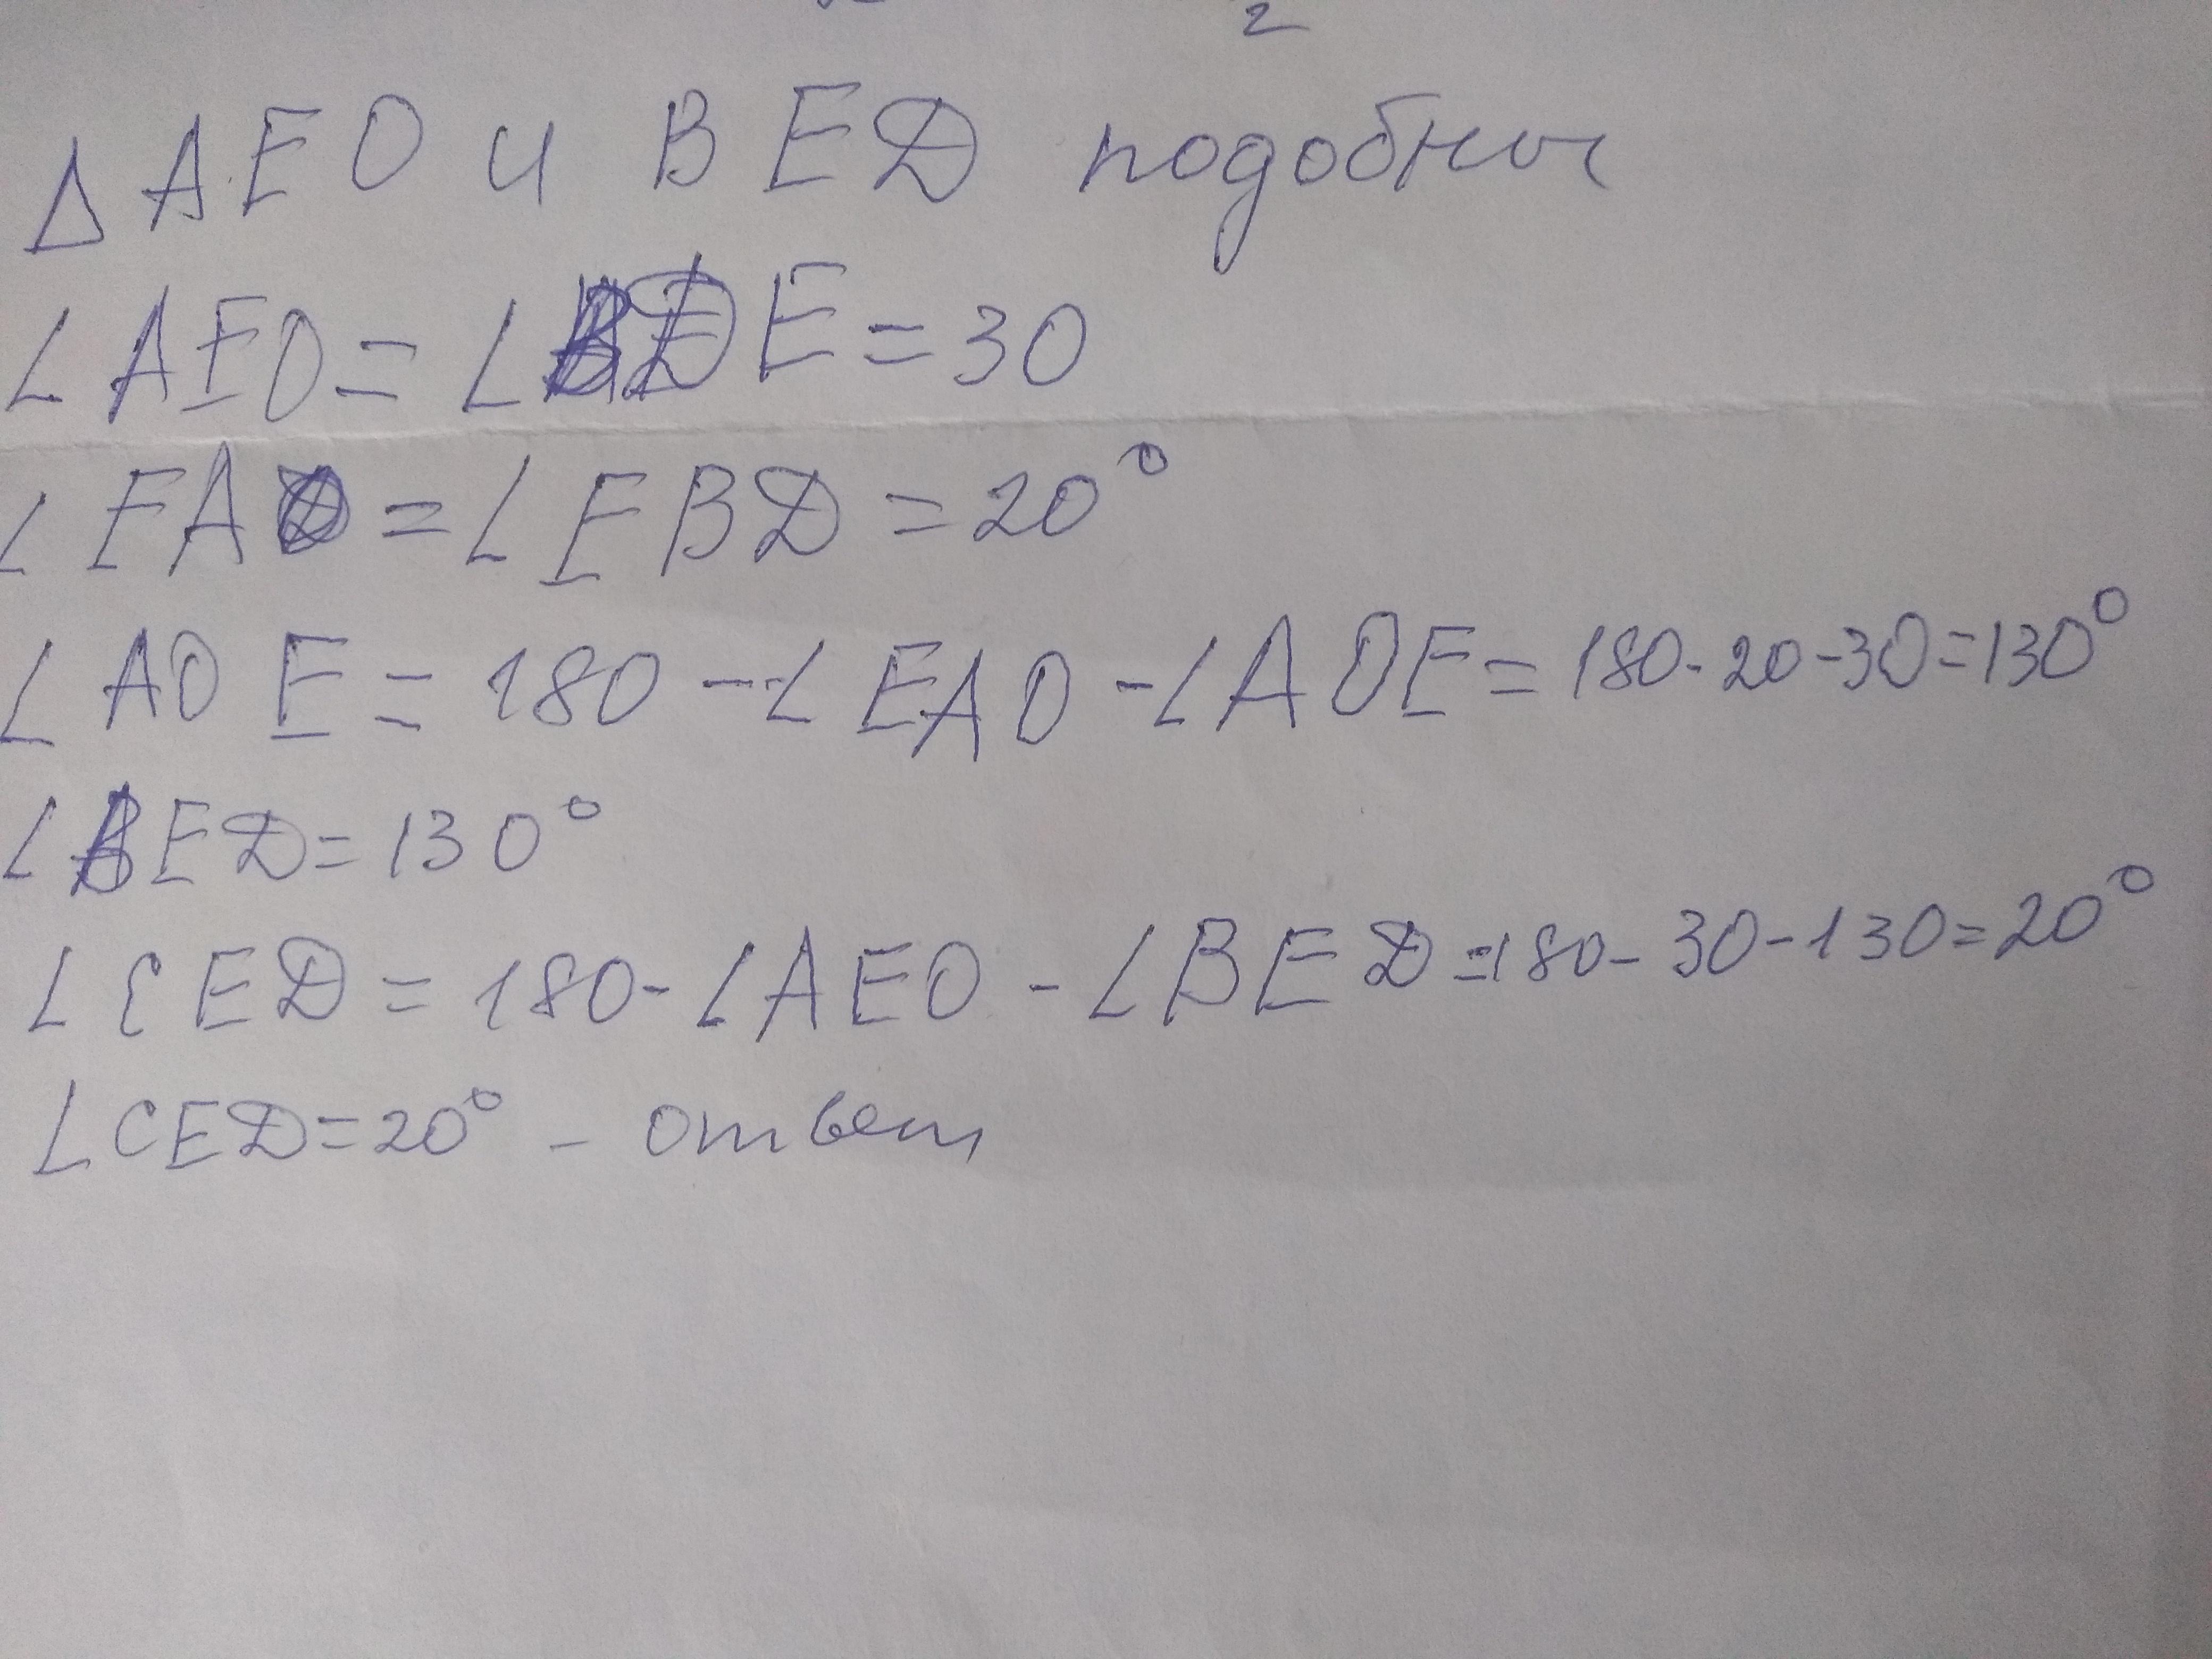 2
Δ AEO и BED подобны
∠AEO = ∠BDE = 30
∠EAO = ∠EBD = 20°
∠AOE = 180 - ∠EAO - ∠AOE = 180 - 20 - 30 = 130°
∠BED = 130°
∠CED = 180 - ∠AEO - ∠BED = 180 - 30 - 130 = 20°
∠CED = 20° - ответ